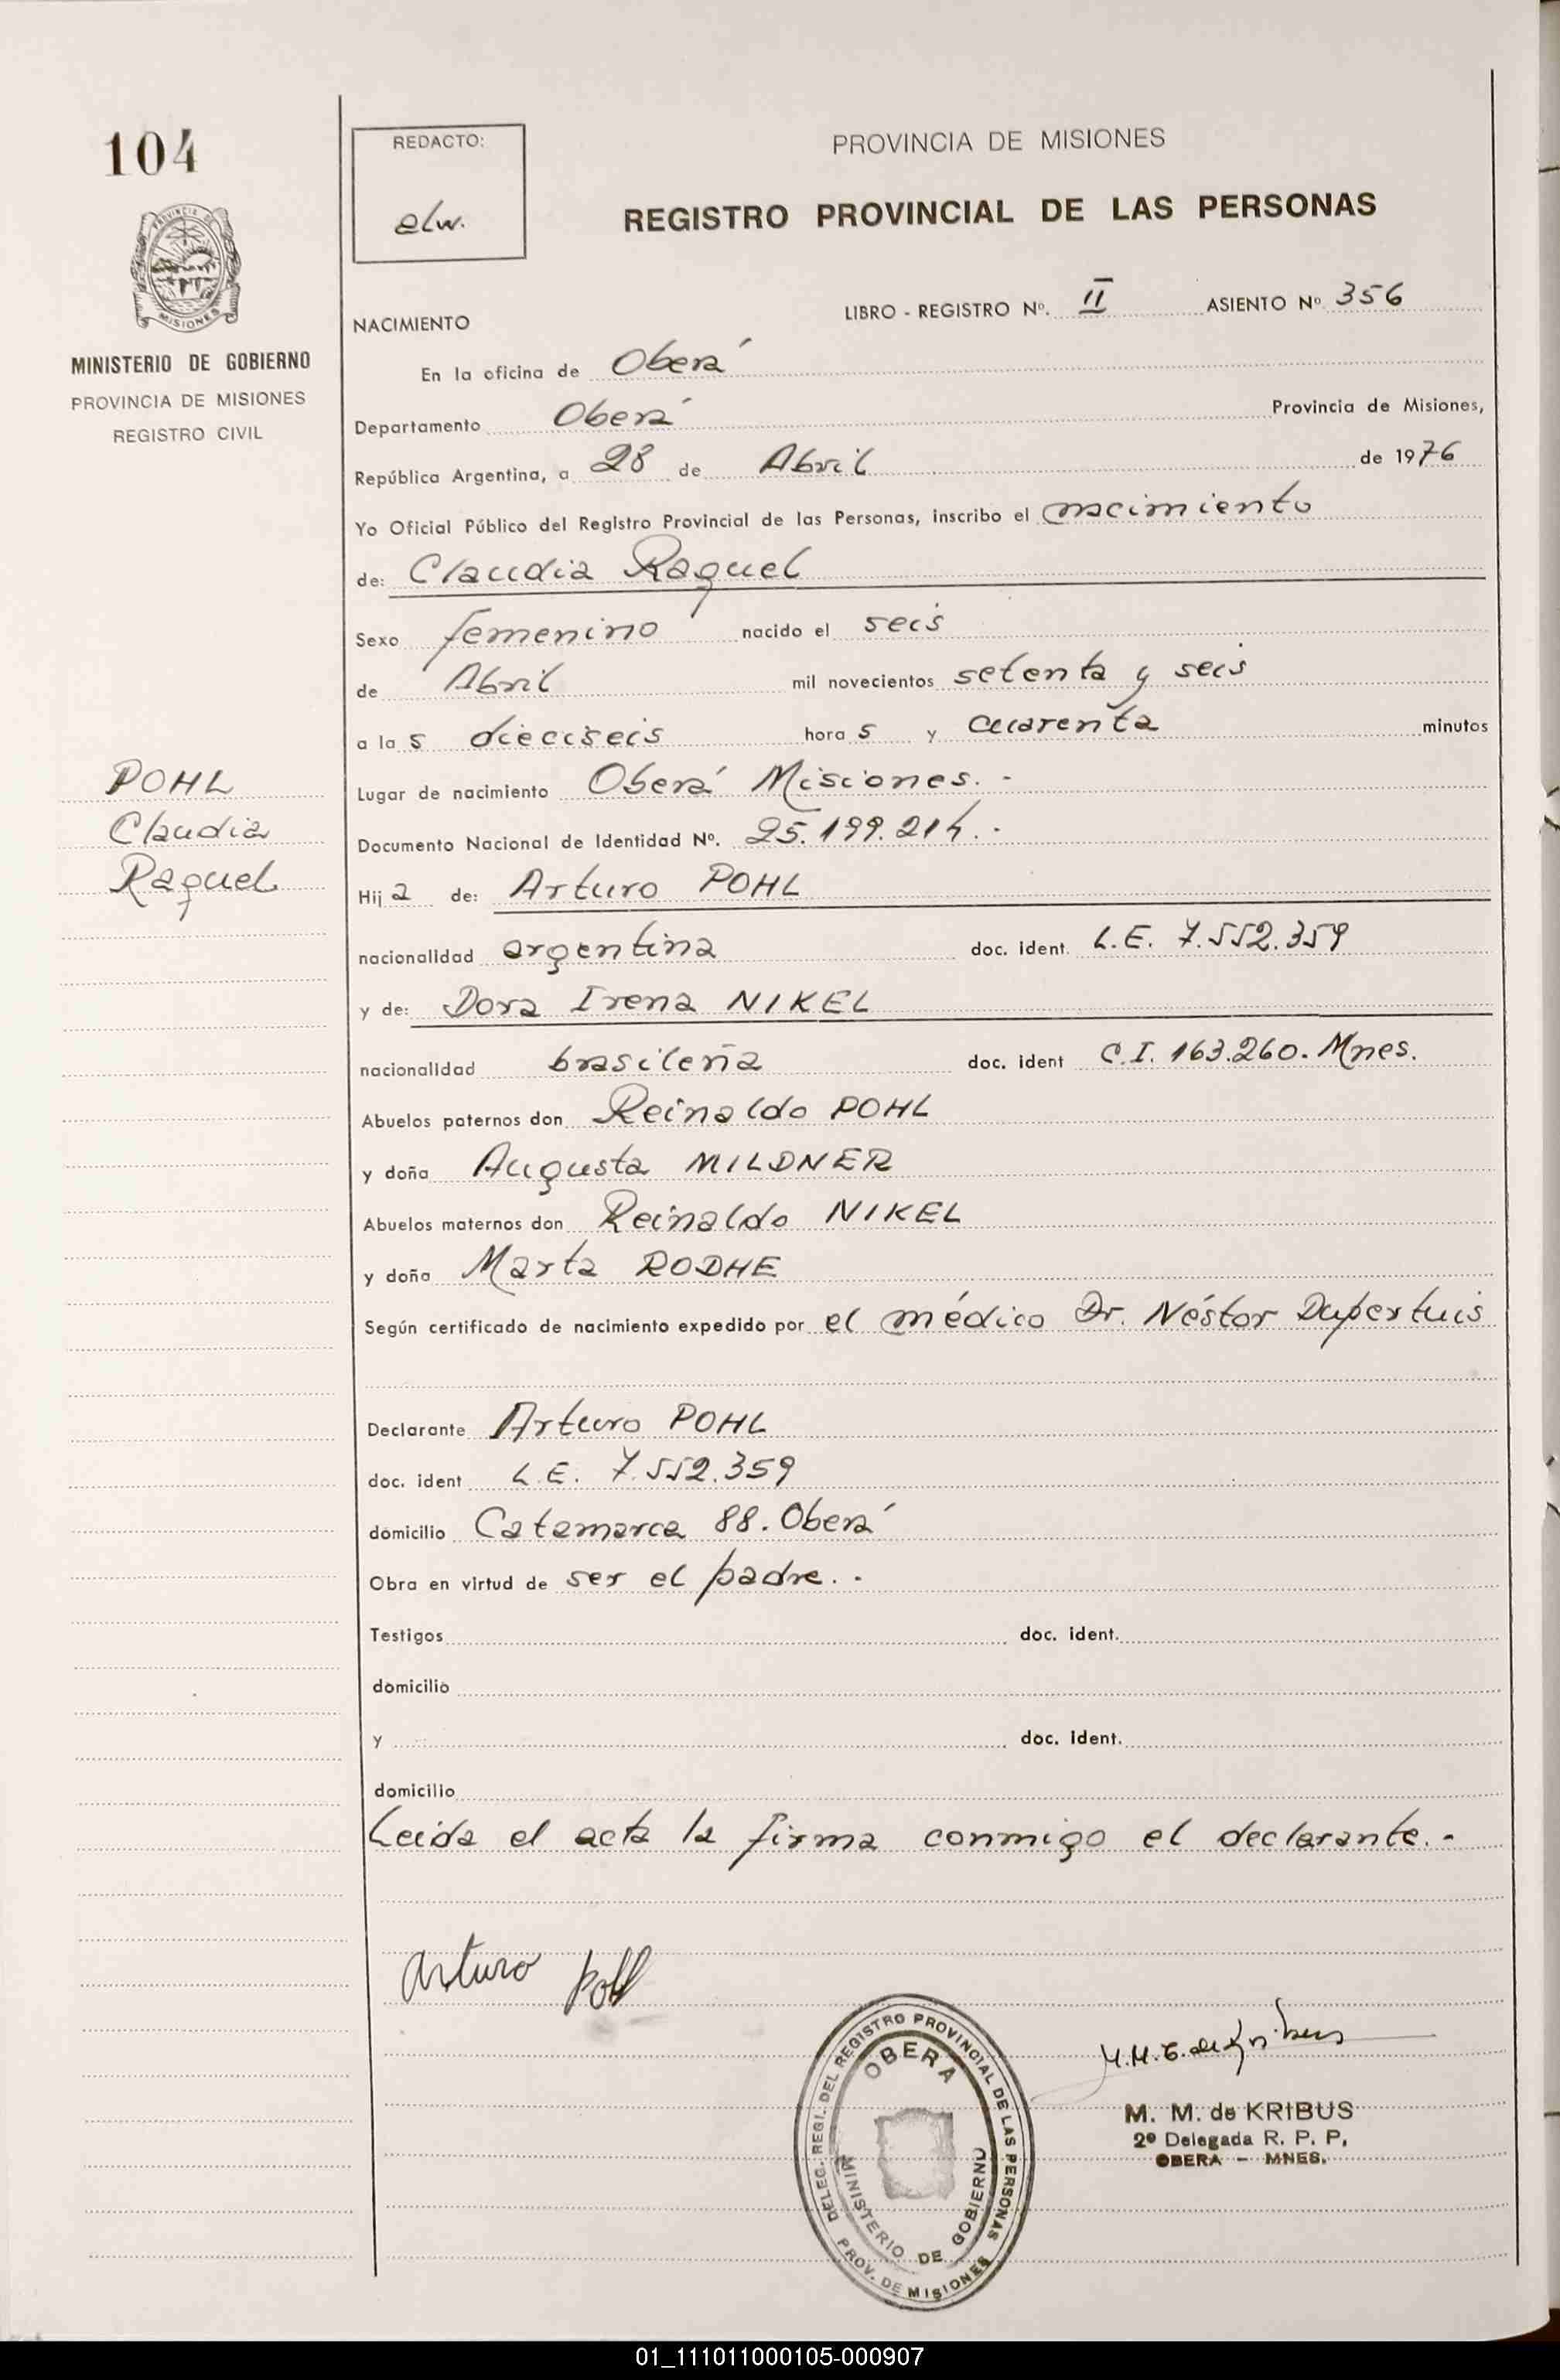 104
REDACTO:
elw.
PROVINCIA DE MISIONES
REGISTRO PROVINCIAL DE LAS PERSONAS
MISIONES
MINISTERIO DE GOBIERNO
PROVINCIA DE MISIONES
REGISTRO CIVIL
LIBRO - REGISTRO Nº. II ASIENTO Nº 356
NACIMIENTO
En la oficina de Oberá
Departamento Oberá Provincia de Misiones,
República Argentina, a 28 de Abril de 1976
Yo Oficial Público del Registro Provincial de las Personas, inscribo el nacimiento
de: Claudia Raquel
Sexo femenino nacido el seis
de Abril mil novecientos setenta y seis
a la s dieciseis hora s y cuarenta minutos
POHL
Claudia
Raquel
Lugar de nacimiento Oberá Misiones. -
Documento Nacional de Identidad Nº. 25.199.214. -
Hij a de: Arturo POHL
nacionalidad argentina doc. ident. L.E. 7.552.359
y de: Dora Irena NIKEL
nacionalidad brasileña doc. ident C.I. 163.260. Mnes.
Abuelos paternos don Reinaldo POHL
y doña Augusta MILDNER
Abuelos maternos don Reinaldo NIKEL
y doña Marta RODHE
Según certificado de nacimiento expedido por el médico Dr. Néstor Dupertuis
Declarante Arturo POHL
doc. ident L.E. 7.552.359
domicilio Catamarca 88. Oberá
Obra en virtud de ser el padre. -
Testigos doc. ident.
domicilio
y doc. ident.
domicilio
Leida el acta la firma conmigo el declarante. -
Arturo Pohl
DELEG. REGI. DEL REGISTRO PROVINCIAL DE LAS PERSONAS
OBERA
MINISTERIO DE GOBIERNO
PROV. DE MISIONES
M. M. de KRIBUS
2º Delegada R. P. P,
OBERA - MNES.
01_111011000105-000907